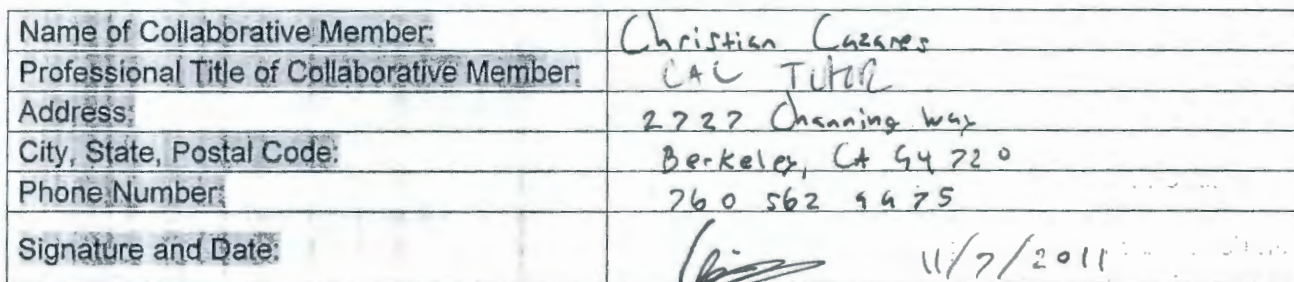 Name of Collaborative Member: Christian Cazares
Professional Title of Collaborative Member: CAC TUTOR
Address: 2727 Channing Way
City, State, Postal Code: Berkeley, CA 94720
Phone Number: 760 562 9975
Signature and Date: 11/7/2011